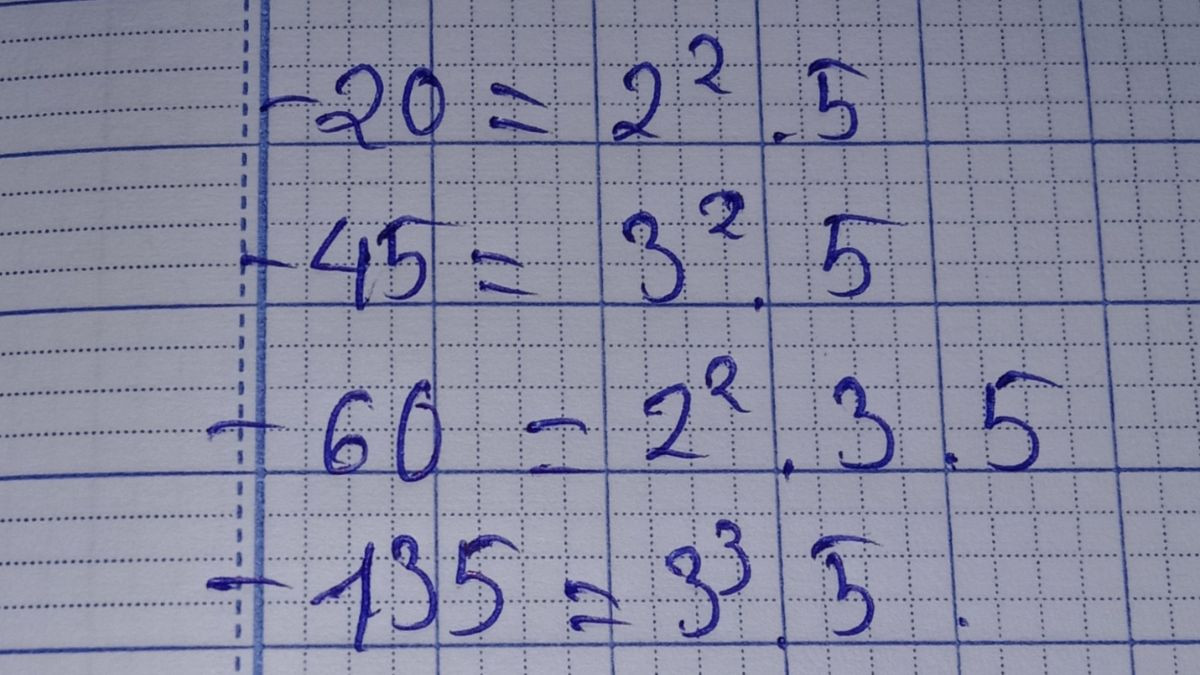 - 20 = 2² . 5
- 45 = 3² . 5
- 60 = 2² . 3 . 5
- 135 = 3³ . 5 .